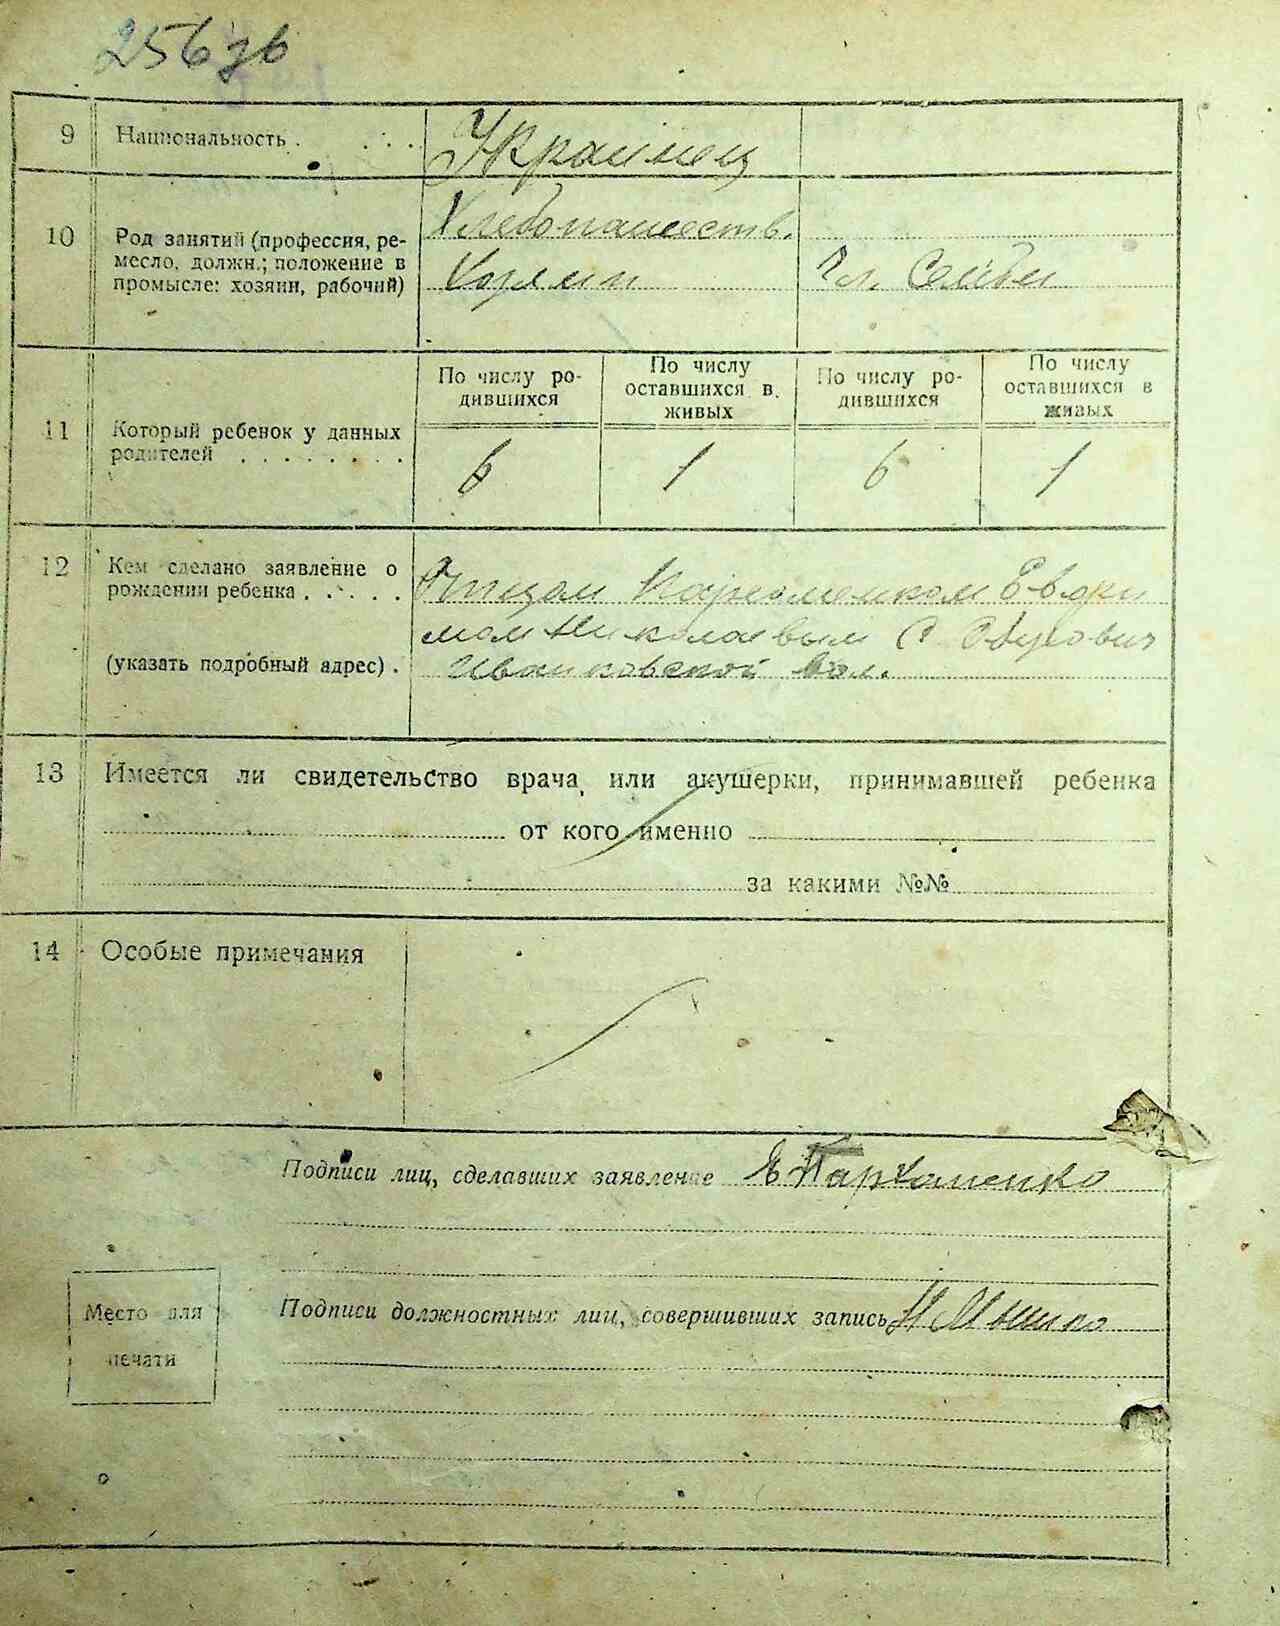 256 зв
9 Национальность . . . . Украинец
10 Род занятий (профессия, ре-
месло, должн.; положение в
промысле: хозяин, рабочий)
Хлебопашеств.
Хозяин Чл. Семьи
11 Который ребенок у данных
родителей . . . . . . . .
По числу ро-
дившихся
По числу
оставшихся в
живых
По числу ро-
дившихся
По числу
оставшихся в
живых
6 1 6 1
12 Кем сделано заявление о
рождении ребенка . . . . .
(указать подробный адрес) .
Отцом Пархоменком Евфи
мом Николаевым С
Иваньковской вол.
13 Имеется ли свидетельство врача, или акушерки, принимавшей ребенка
от кого именно
за какими №№
14 Особые примечания
Подписи лиц, сделавших заявление Е Пархоменко
Место для
печати
Подписи должностных лиц, совершивших запись